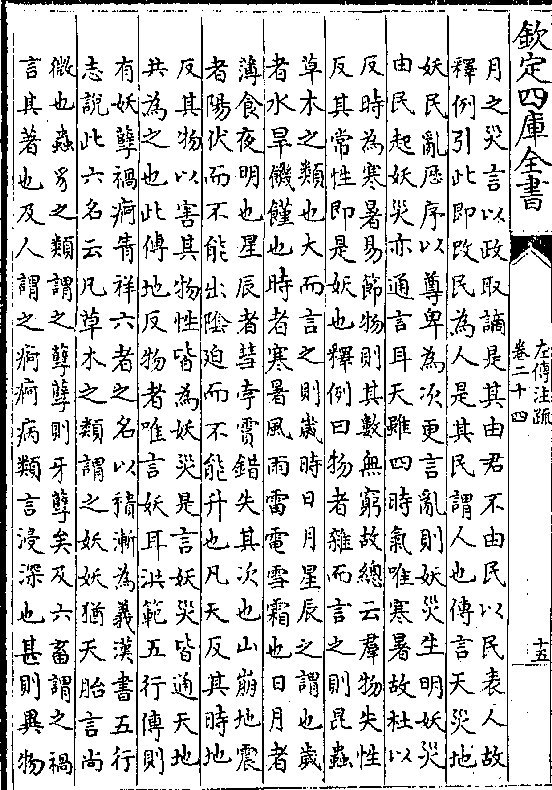 欽定四庫全書
左傳注疏
卷二十四
十五
月之災言以政取謫是其由君不由民以民表人故
釋例引此即改民為人是其民謂人也傳言天災地
妖民亂厯序以尊卑為次更言亂則妖災生明妖災
由民起妖災亦通言耳天雖四時氣唯寒暑故杜以
反時為寒暑易節物則其數無窮故總云羣物失性
反其常性即是妖也釋例曰物者雜而言之則昆蟲
草木之類也大而言之則歲時日月星辰之謂也歲
者水旱饑饉也時者寒暑風雨雷電雪霜也日月者
薄食夜明也星辰者彗孛霣錯失其次也山崩地震
者陽伏而不能出陰迫而不能升也凡天反其時地
反其物以害其物性皆為妖災是言妖災皆通天地
共為之也此傳地反物者唯言妖耳洪範五行傳則
有妖孽禍痾眚祥六者之名以積漸為義漢書五行
志說此六名云凡草木之類謂之妖妖猶夭胎言尚
微也蟲豸之類謂之孽孽則牙孽矣及六畜謂之禍
言其著也及人謂之痾痾病類言浸深也甚則異物